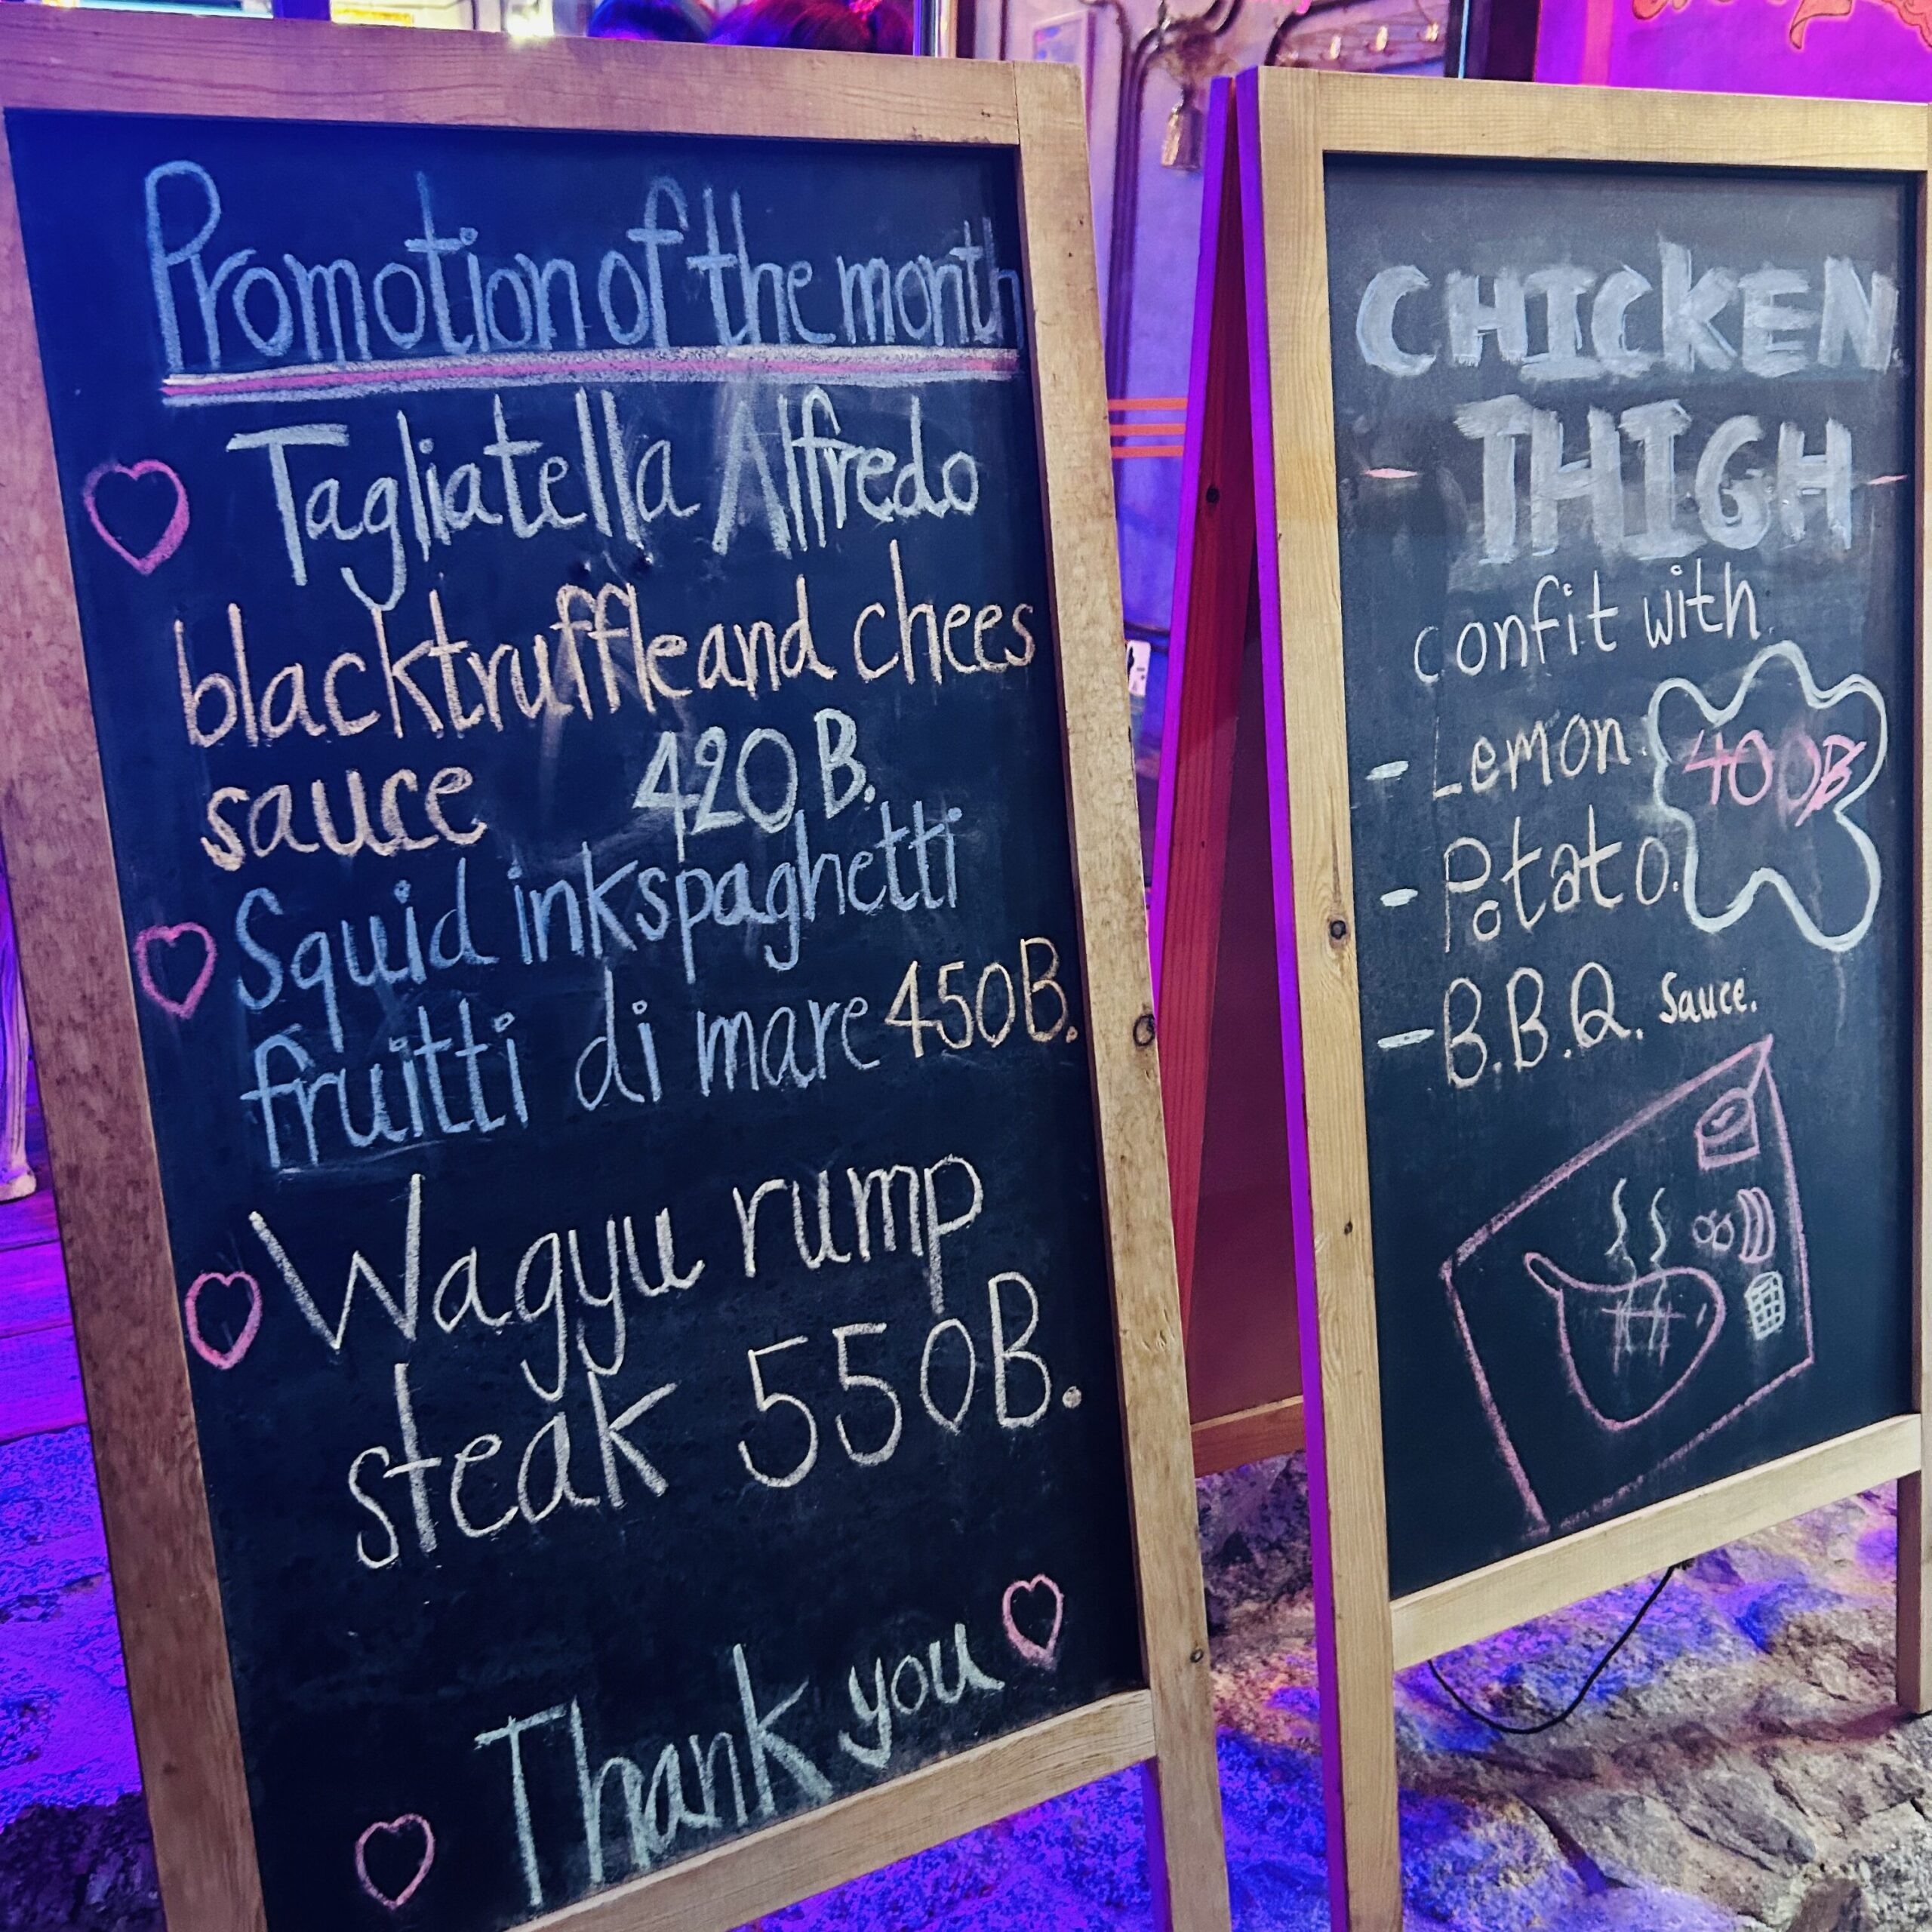 Promotion of the month
Tagliatella Alfredo
blacktruffleand chees
sauce 420 B.
Squid inkspaghetti
fruitti di mare 450B.
Wagyu rump
steak 550B.
Thank you
CHICKEN
THIGH
confit with
- Lemon. 400B
- Potato.
- B.B.Q. Sauce.